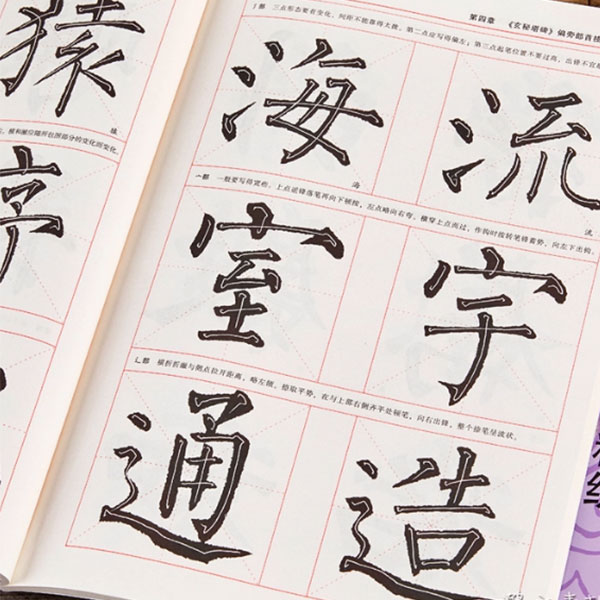 第四章 《玄秘塔碑》偏旁部首
氵部 三点形态要有变化，间距不能靠得太拢。第二点应写得偏左；第三点起笔位置不要过高，出锋不宜
海 流
海 流
宀部 一般要写得宽些。上点逆锋落笔再向下顿按，左点略向右弯，横穿上点而过，作钩时按转笔锋蓄势，向左下出钩。
室 宇
辶部 横折折撇与侧点拉开距离，略左倾。捺取平势，在与上部右侧齐平处顿笔，向右出锋，整个捺笔呈波状。
通 造
猿
猿